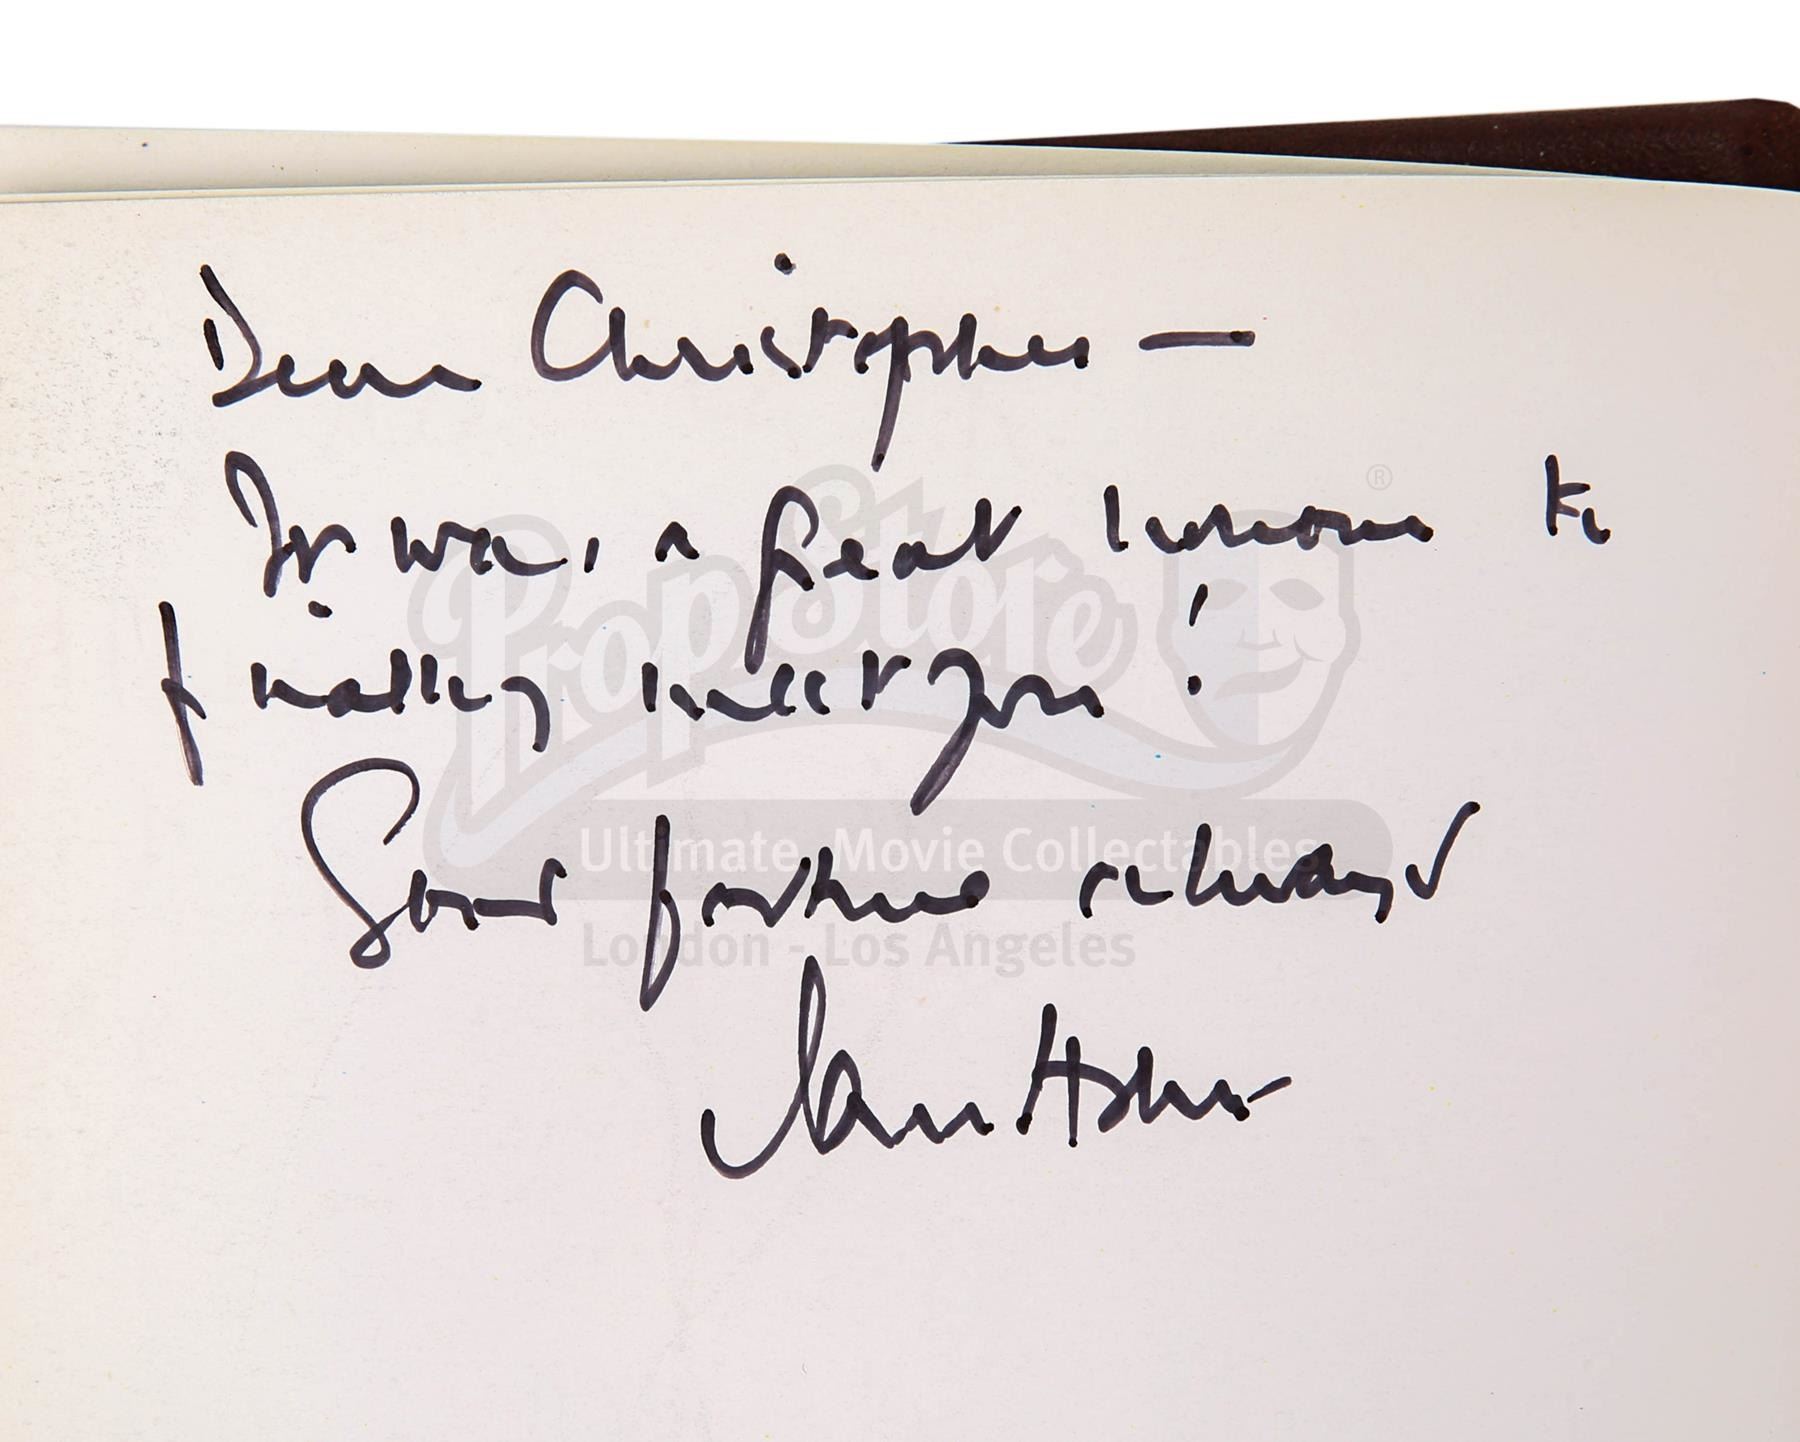 Dear Christopher —
It was a great honour to
finally meet you!
Good fortune always
PropStore ®
Ultimate Movie Collectables
London - Los Angeles